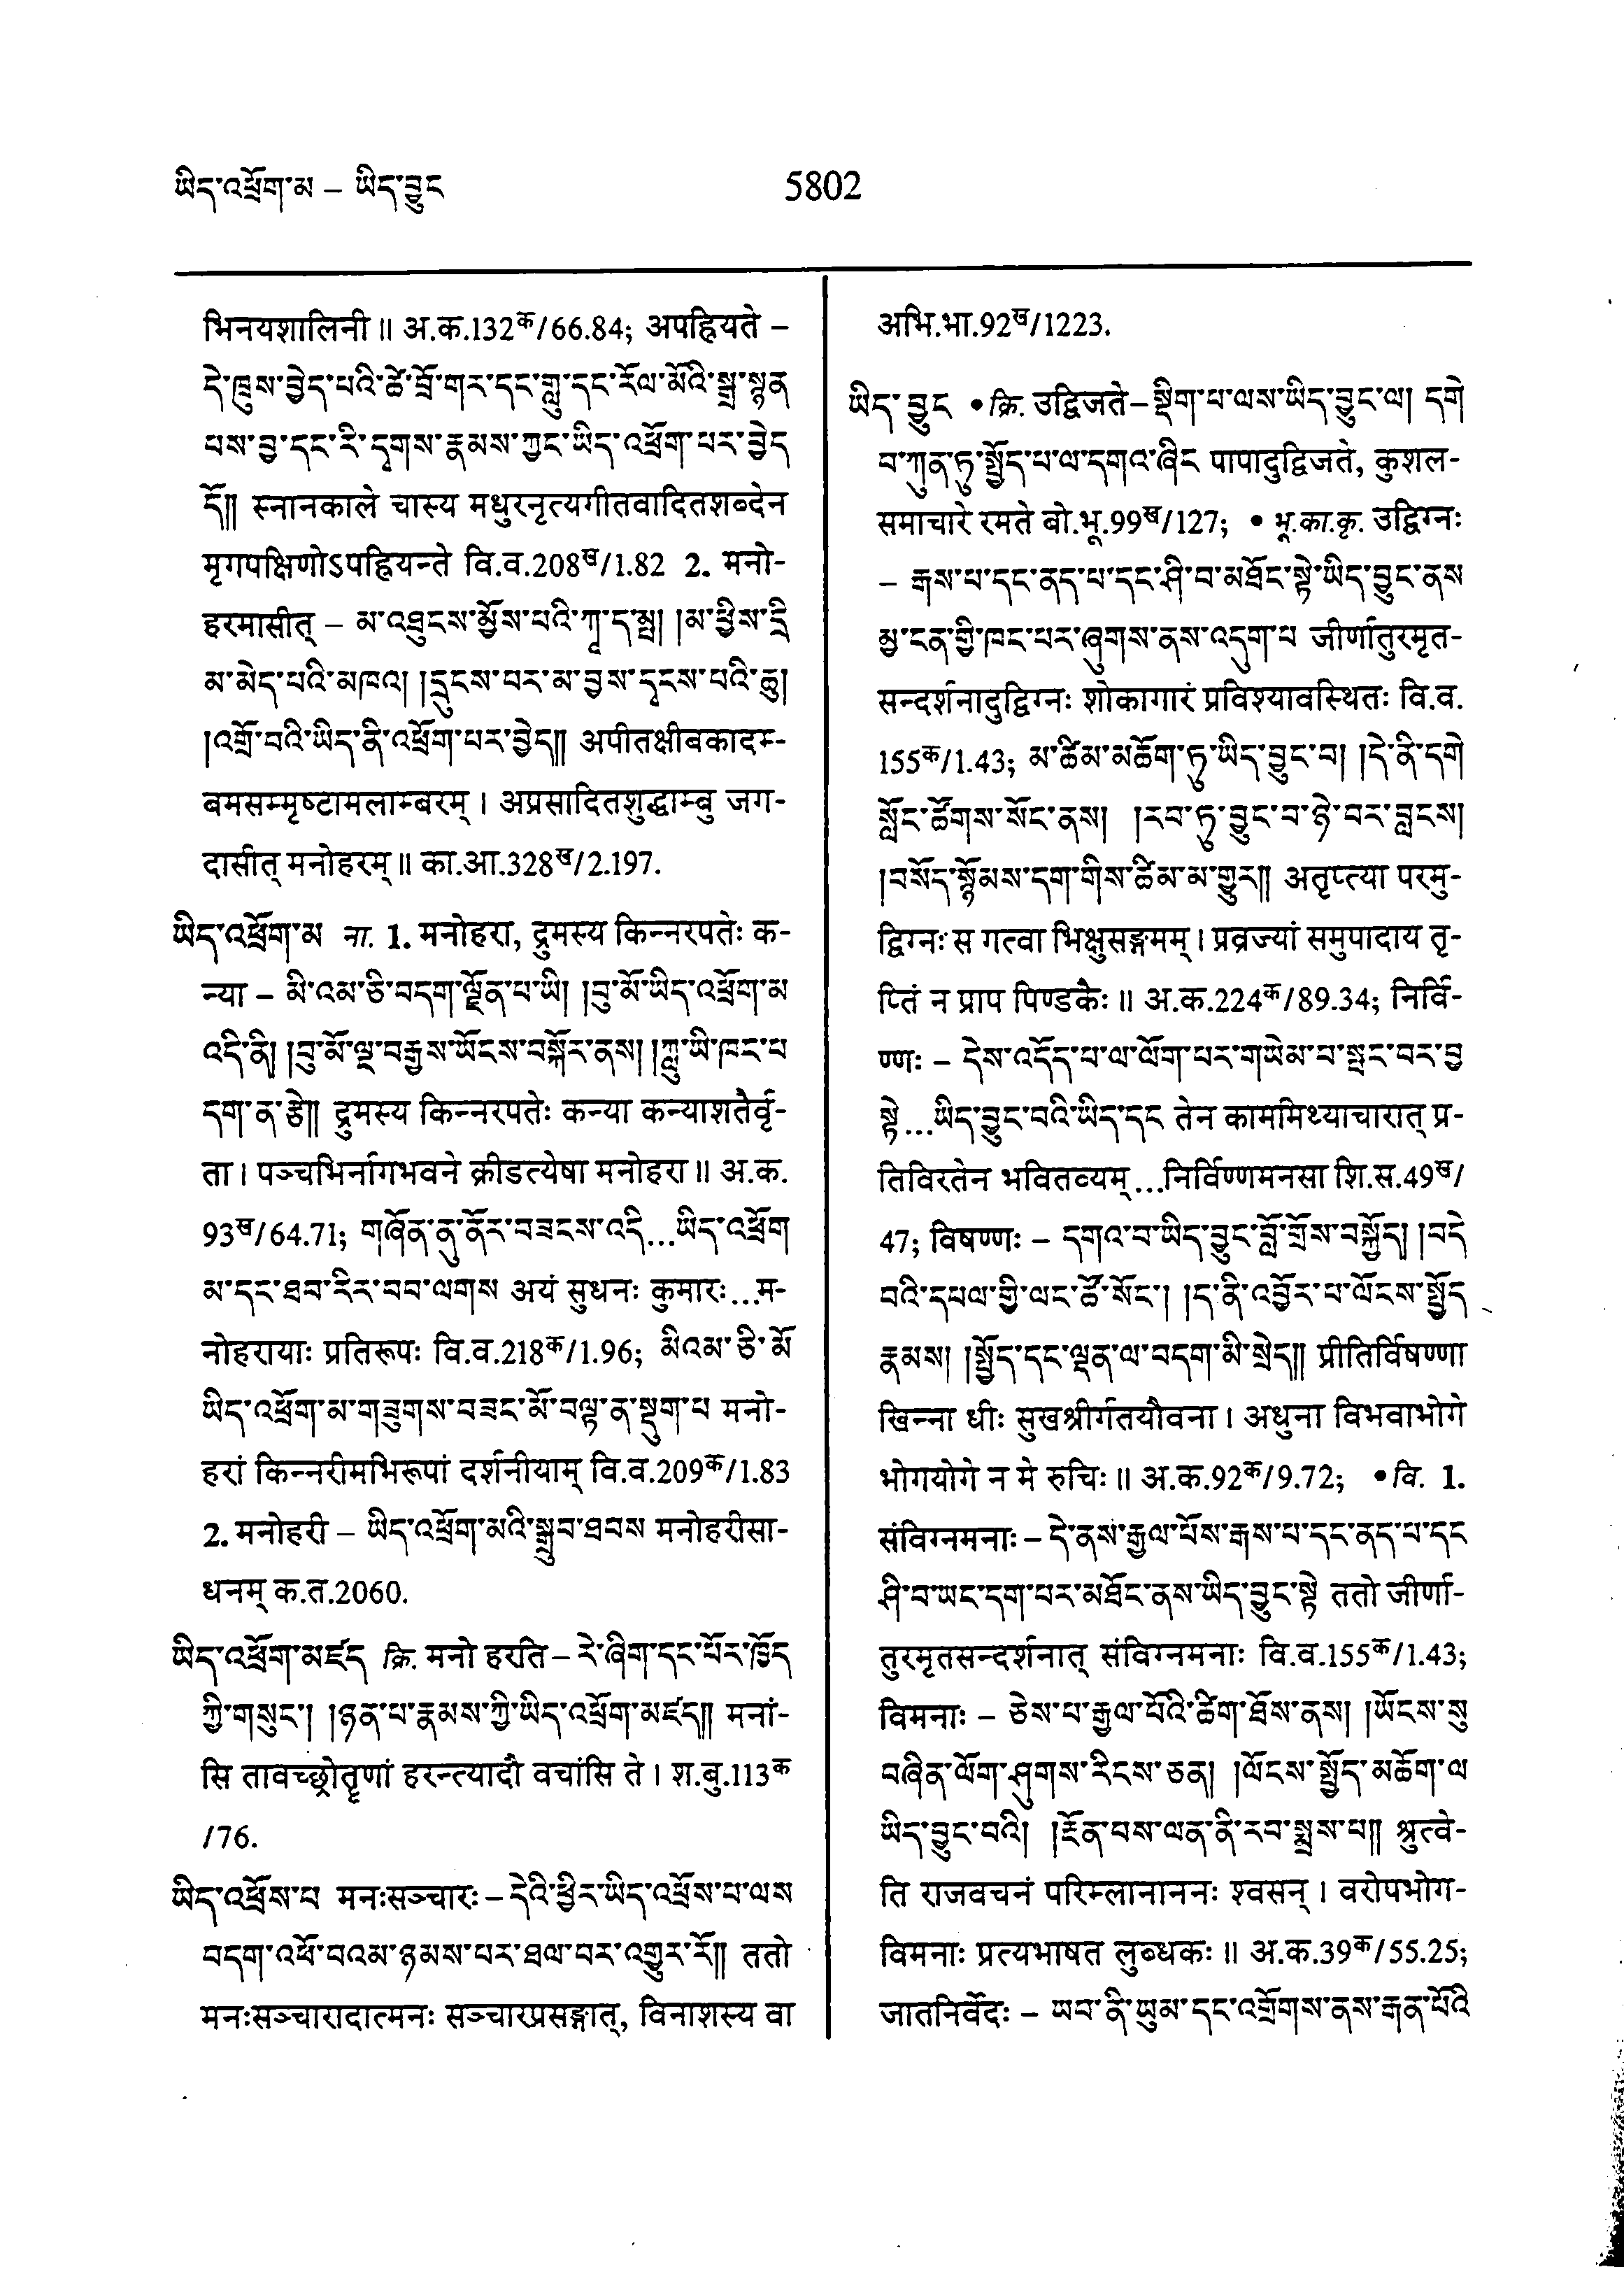 ཡིད་འཕྲོག་མ – ཡིད་བྱུང
5802
भिनयशालिनी ॥ अ.क.132क/66.84; अपह्रियते –
དེ་ཁྲུས་བྱེད་པའི་ཚེ་བྲོ་གར་དང་གླུ་དང་རོལ་མོའི་སྒྲ་སྙན
པས་བྱ་དང་རི་དྭགས་རྣམས་ཀྱང་ཡིད་འཕྲོག་པར་བྱེད
དོ༎ स्नानकाले चास्य मधुरनृत्यगीतवादितशब्देन
मृगपक्षिणोऽपह्रियन्ते वि.व.208ख/1.82 2. मनो-
हरमासीत् – མ་འཐུངས་མྱོས་པའི་ཀཱ་ད་མྦ། །མ་ཕྱིས་དྲི
མ་མེད་པའི་མཁའ། །དྭངས་པར་མ་བྱས་དྭངས་པའི་ཆུ།
།འགྲོ་བའི་ཡིད་ནི་འཕྲོག་པར་བྱེད༎ अपीतक्षीबकादम्-
बमसम्मृष्टामलाम्बरम् । अप्रसादितशुद्धाम्बु जग-
दासीत् मनोहरम् ॥ का.आ.328ख/2.197.
ཡིད་འཕྲོག་མ ना. 1. मनोहरा, द्रुमस्य किन्नरपतेः क-
न्या – མི་འམ་ཅི་བདག་ལྗོན་པ་ཡི། །བུ་མོ་ཡིད་འཕྲོག་མ
འདི་ནི། །བུ་མོ་ལྔ་བརྒྱས་ཡོངས་བསྐོར་ནས། །ཀླུ་ཡི་ཁང་པ
དག་ན་རྩེ༎ द्रुमस्य किन्नरपतेः कन्या कन्याशतैर्वृ-
ता । पञ्चभिर्नागभवने क्रीडत्येषा मनोहरा ॥ अ.क.
93ख/64.71; གཞོན་ནུ་ནོར་བཟངས་འདི...ཡིད་འཕྲོག
མ་དང་ཐབ་རིར་བབ་ལགས अयं सुधनः कुमारः...म-
नोहरायाः प्रतिरूपः वि.व.218क/1.96; མིའམ་ཅི་མོ
ཡིད་འཕྲོག་མ་གཟུགས་བཟང་མོ་བལྟ་ན་སྡུག་པ मनो-
हरां किन्नरीमभिरूपां दर्शनीयाम् वि.व.209क/1.83
2. मनोहरी – ཡིད་འཕྲོག་མའི་སྒྲུབ་ཐབས मनोहरीसा-
धनम् क.त.2060.
ཡིད་འཕྲོག་མཛད क्रि. मनो हरति – རེ་ཞིག་དང་པོར་ཁྱོད
ཀྱི་གསུང༌། །ཉན་པ་རྣམས་ཀྱི་ཡིད་འཕྲོག་མཛད༎ मनां-
सि तावच्छ्रोतॄणां हरन्त्यादौ वचांसि ते । श.बु.113क
/76.
ཡིད་འཕྲོས་པ मनःसञ्चारः – དེའི་ཕྱིར་ཡིད་འཕྲོས་པ་ལས
བདག་འཕོ་བའམ་ཉམས་པར་ཐལ་བར་འགྱུར་རོ༎ ततो
मनःसञ्चारादात्मनः सञ्चारप्रसङ्गात्, विनाशस्य वा
अभि.भा.92ख/1223.
ཡིད་བྱུང •क्रि. उद्विजते – སྡིག་པ་ལས་ཡིད་བྱུང་ལ། དགེ
བ་ཀུན་ཏུ་སྤྱོད་པ་ལ་དགའ་ཞིང पापादुद्विजते, कुशल-
समाचारे रमते बो.भू.99ख/127; • भू.का.कृ. उद्विग्नः
– རྒས་པ་དང་ནད་པ་དང་ཤི་བ་མཐོང་སྟེ་ཡིད་བྱུང་ནས
མྱ་ངན་གྱི་ཁང་པར་ཞུགས་ནས་འདུག་པ जीर्णातुरमृत-
सन्दर्शनादुद्विग्नः शोकागारं प्रविश्यावस्थितः वि.व.
155क/1.43; མ་ཚིམ་མཆོག་ཏུ་ཡིད་བྱུང་བ། །དེ་ནི་དགེ
སློང་ཚོགས་སོང་ནས། །རབ་ཏུ་བྱུང་བ་ཉེ་བར་བླངས།
།བསོད་སྙོམས་དག་གིས་ཚིམ་མ་གྱུར༎ अतृप्त्या परमु-
द्विग्नः स गत्वा भिक्षुसङ्गमम् । प्रव्रज्यां समुपादाय तृ-
प्तिं न प्राप पिण्डकैः ॥ अ.क.224क/89.34; निर्वि-
ण्णः – དེས་འདོད་པ་ལ་ལོག་པར་གཡེམ་བ་སྤང་བར་བྱ
སྟེ...ཡིད་བྱུང་བའི་ཡིད་དང तेन काममिथ्याचारात् प्र-
तिविरतेन भवितव्यम्...निर्विण्णमनसा शि.स.49ख/
47; विषण्णः – དགའ་བ་ཡིད་བྱུང་བློ་གྲོས་བསྐྱོད། །བདེ
བའི་དཔལ་གྱི་ལང་ཚོ་སོང༌། །ད་ནི་འབྱོར་པ་ལོངས་སྤྱོད
རྣམས། །སྤྱོད་དང་ལྡན་ལ་བདག་མི་སྲེད༎ प्रीतिर्विषण्णा
खिन्ना धीः सुखश्रीर्गतयौवना । अधुना विभवाभोगे
भोगयोगे न मे रुचिः ॥ अ.क.92क/9.72; •वि. 1.
संविग्नमनाः – དེ་ནས་རྒྱལ་པོས་རྒས་པ་དང་ནད་པ་དང
ཤི་བ་ཡང་དག་པར་མཐོང་ནས་ཡིད་བྱུང་སྟེ ततो जीर्णा-
तुरमृतसन्दर्शनात् संविग्नमनाः वि.व.155क/1.43;
विमनाः – ཅེས་པ་རྒྱལ་པོའི་ཚིག་ཐོས་ནས། །ཡོངས་སུ
བཞིན་ལོག་ཤུགས་རིངས་ཅན། །ལོངས་སྤྱོད་མཆོག་ལ
ཡིད་བྱུང་བའི། །རྔོན་པས་ལན་ནི་རབ་སྨྲས་པ༎ श्रुत्वे-
ति राजवचनं परिम्लानाननः श्वसन् । वरोपभोग-
विमनाः प्रत्यभाषत लुब्धकः ॥ अ.क.39क/55.25;
जातनिर्वेदः – ཡབ་ནི་ཡུམ་དང་འགྲོགས་ནས་རྒན་པོའི